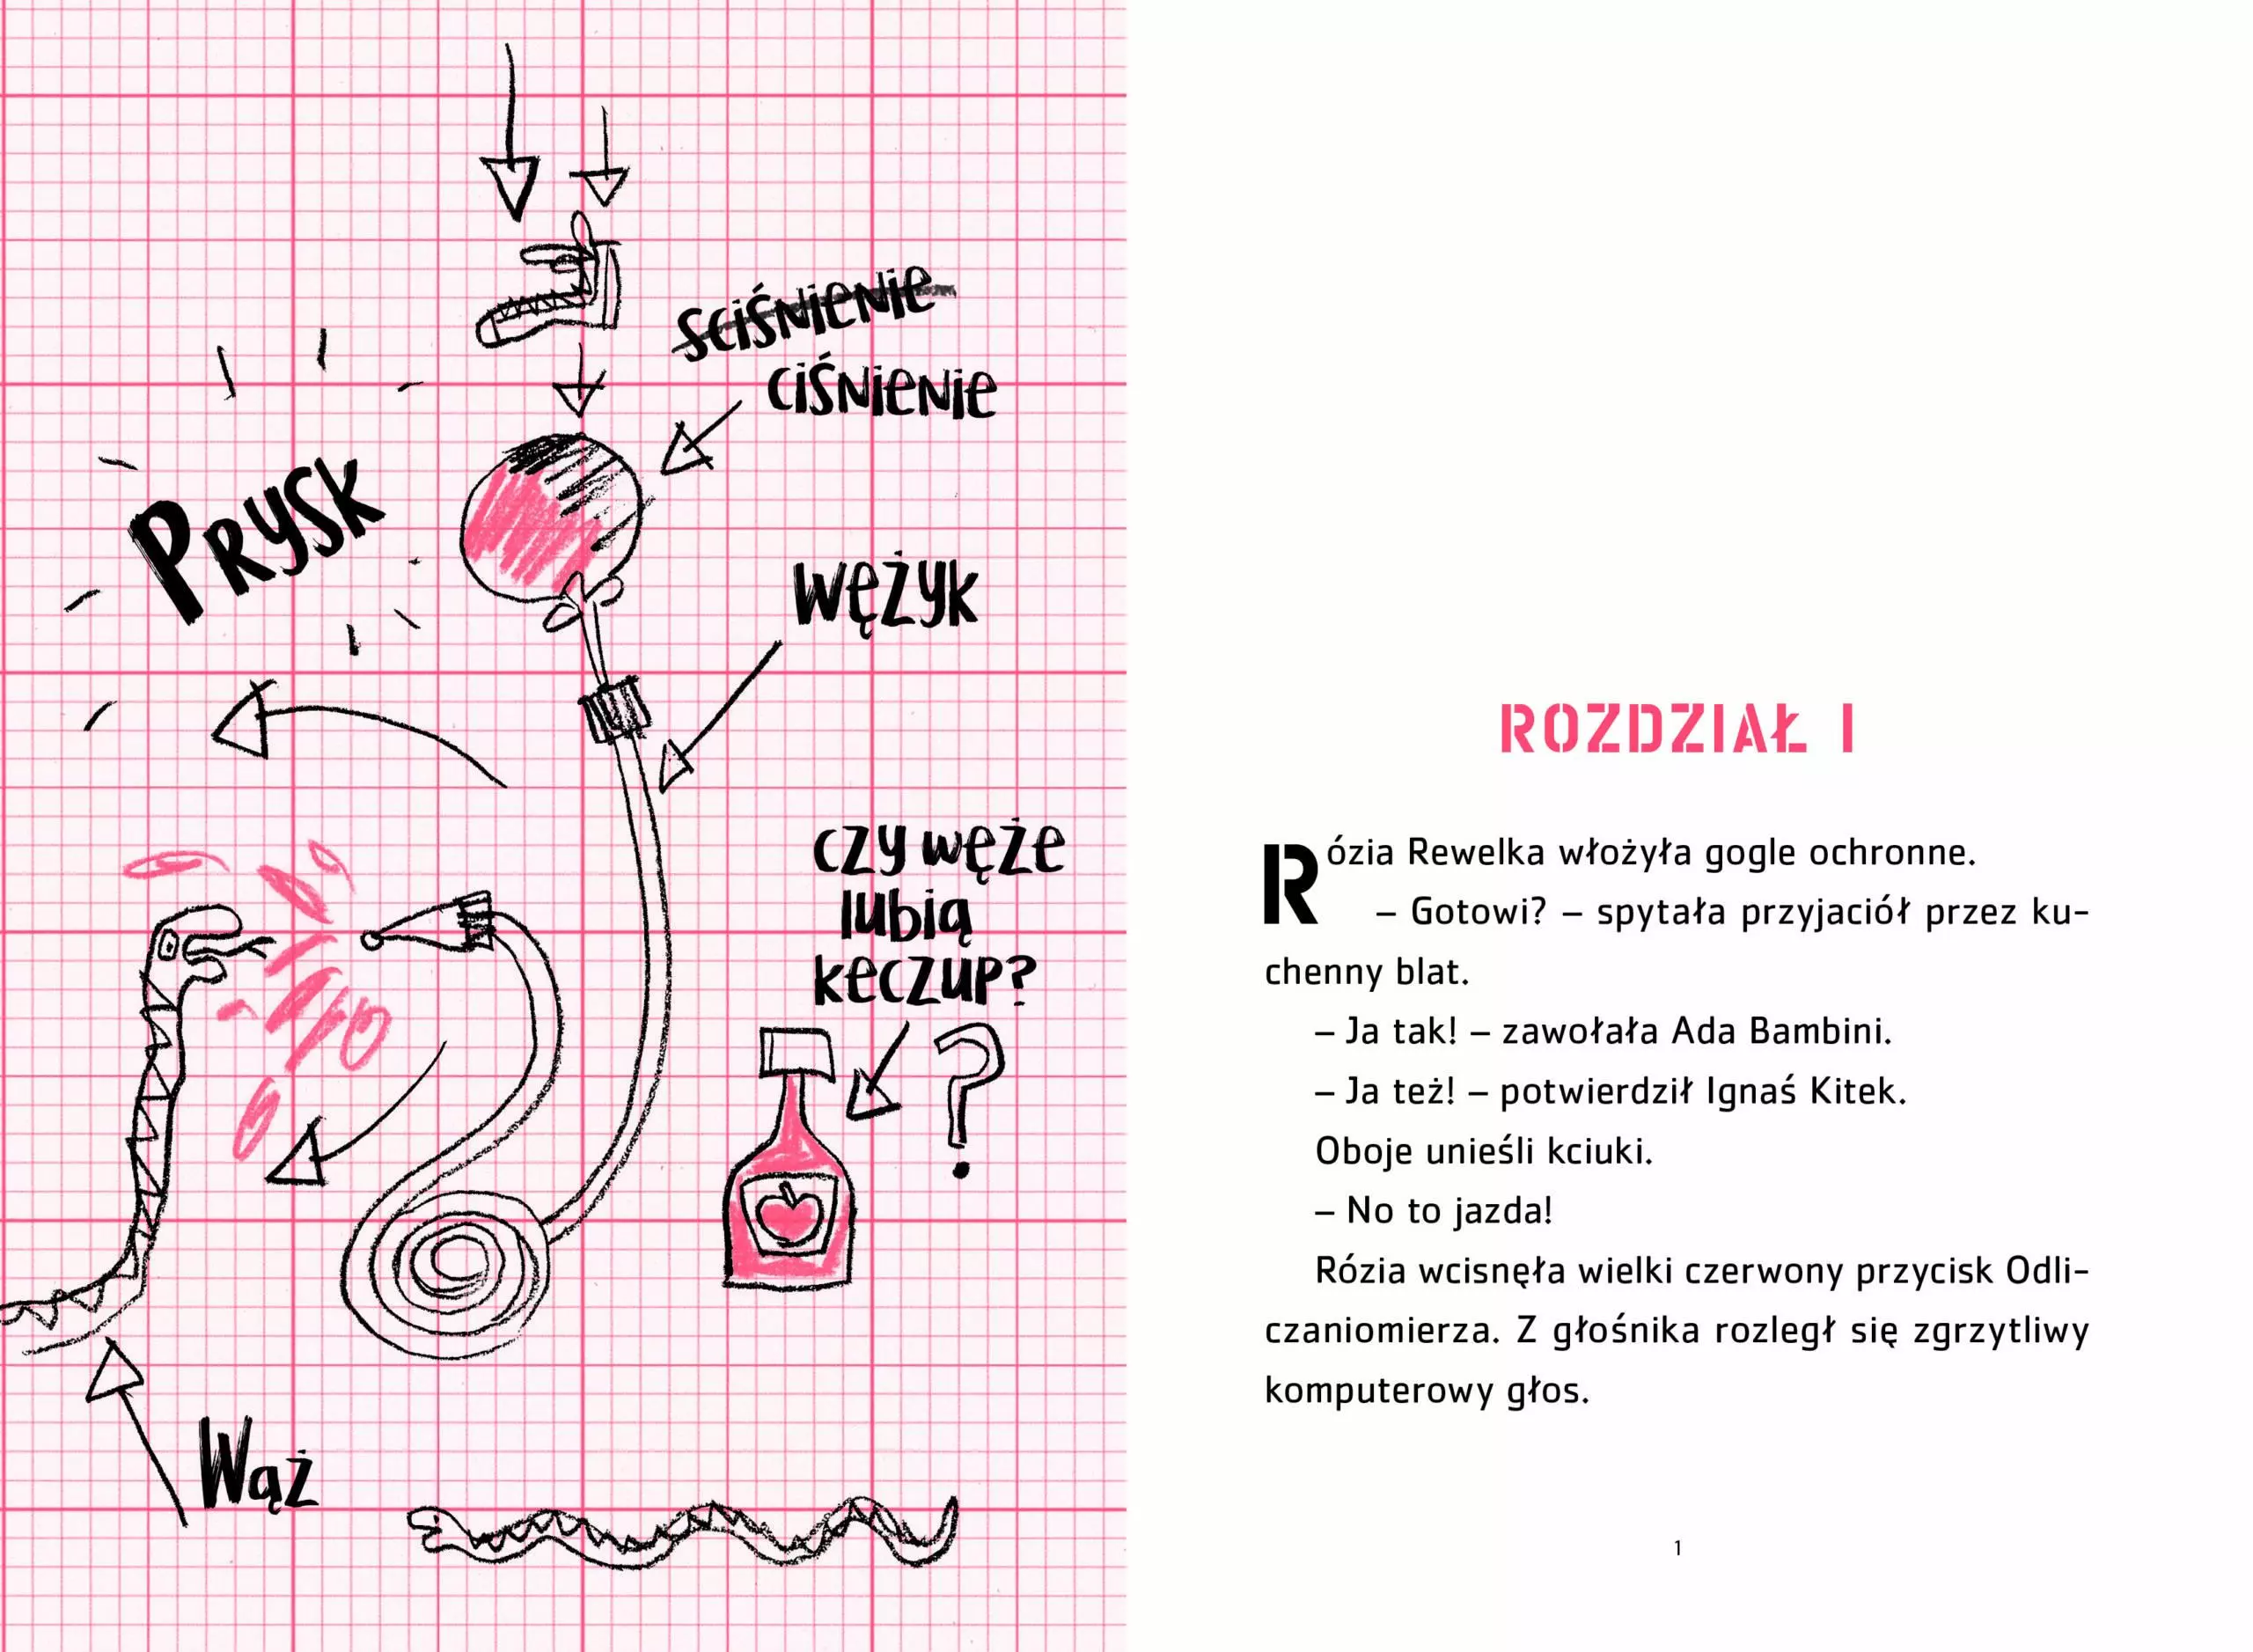 ściśnienie
ciśnienie
Prysk
wężyk
czy węże
lubią
keczup?
Wąż
ROZDZIAŁ I
Rózia Rewelka włożyła gogle ochronne.
– Gotowi? – spytała przyjaciół przez ku-
chenny blat.
– Ja tak! – zawołała Ada Bambini.
– Ja też! – potwierdził Ignaś Kitek.
Oboje unieśli kciuki.
– No to jazda!
Rózia wcisnęła wielki czerwony przycisk Odli-
czaniomierza. Z głośnika rozległ się zgrzytliwy
komputerowy głos.
1